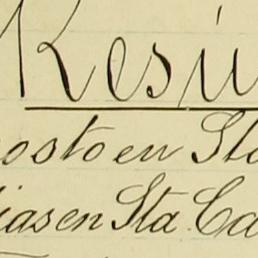 Resu
osto en Sta
ias en Sta Ca